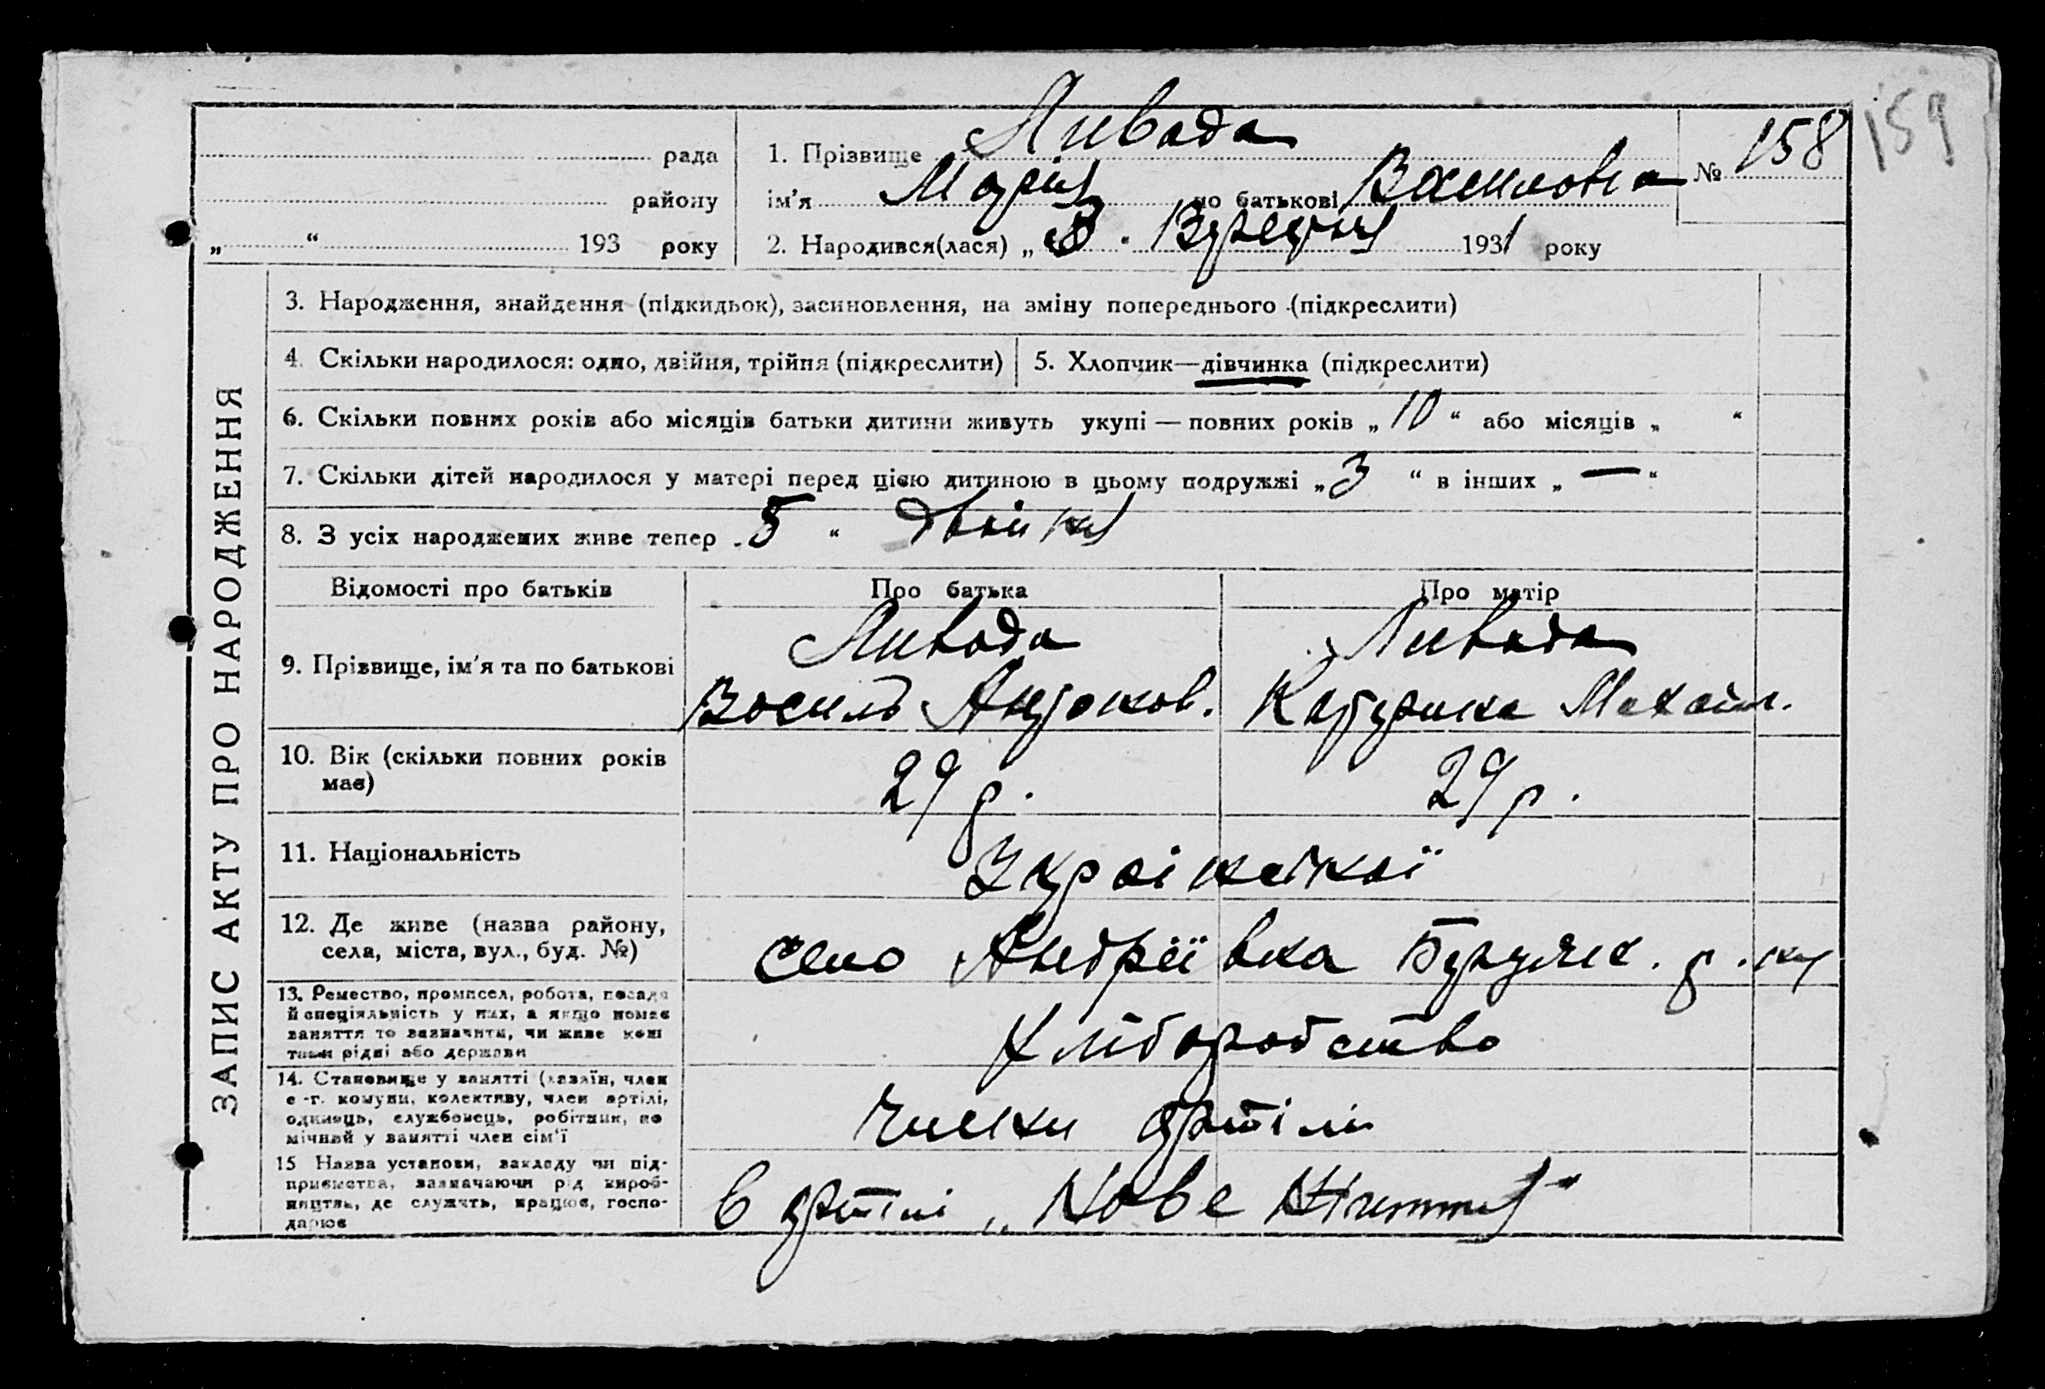 159
рада
району
„ “ 193 року
1. Прізвище Ливада
ім'я Марія по батькові Василовна
2. Народився(лася) „ 3 . Вересня 1931 року
№ 158
ЗАПИС АКТУ ПРО НАРОДЖЕННЯ
3. Народження, знайдення (підкидьок), засиновлення, на зміну попереднього (підкреслити)
4. Скільки народилося: одно, двійня, трійня (підкреслити)
5. Хлопчик—дівчинка (підкреслити)
6. Скільки повних років або місяців батьки дитини живуть укупі — повних років „ 10 “ або місяців „ “
7. Скільки дітей народилося у матері перед цією дитиною в цьому подружжі „ 3 “ в інших „ — “
8. З усіх народжених живе тепер „ 5 “ двійня
Відомості про батьків
Про батька
Про матір
9. Прізвище, ім'я та по батькові
Ливада
Василь
Ливада
Катерина Михайл.
10. Вік (скільки повних років
має)
29 р.
29 р.
11. Національність
Українські
12. Де живе (назва району,
села, міста, вул., буд. №)
село Андріївка р.ну
13. Ремество, промисел, робота, посада
й спеціяльність у них, а якщо немає
заняття то зазначити, чи живе коштами рідні або держави
14. Становище у занятті (хазяїн, член
с.-г. комуни, колективу, член артілі,
одинець, службовець, робітник, помічний у занятті член сім'ї
Хліборобство
члени артіли
15 Назва установи, закладу чи підприємства, зазначаючи рід виробництва, де служить, працює, господарює
в артілі „Нове Життя"